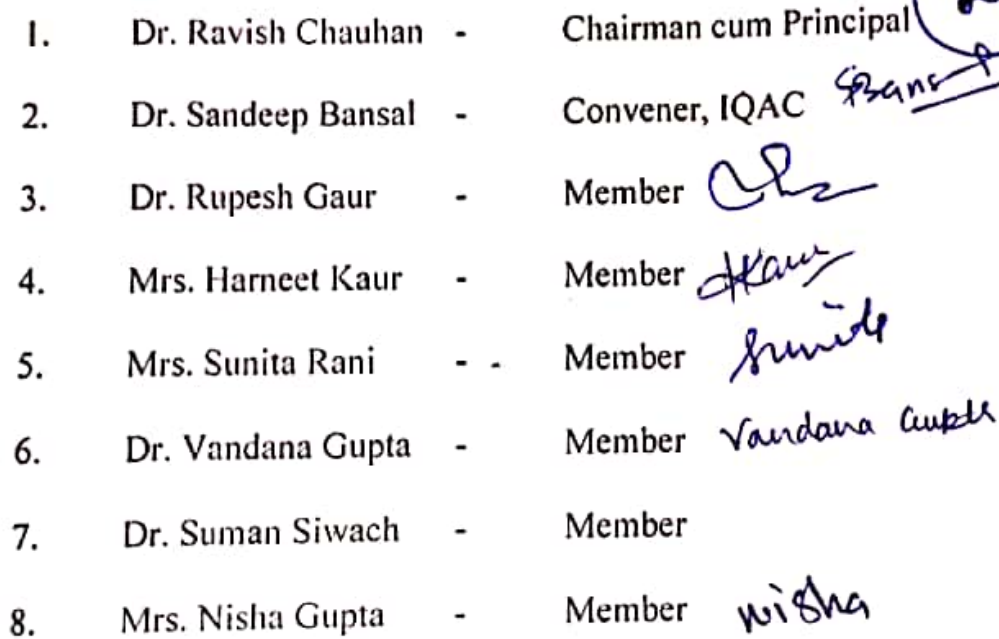 1. Dr. Ravish Chauhan - Chairman cum Principal
2. Dr. Sandeep Bansal - Convener, IQAC SBansal
3. Dr. Rupesh Gaur - Member
4. Mrs. Harneet Kaur - Member HKaur
5. Mrs. Sunita Rani - - Member Sunita
6. Dr. Vandana Gupta - Member Vandana Gupta
7. Dr. Suman Siwach - Member
8. Mrs. Nisha Gupta - Member Nisha